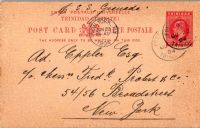 S.S. Grenada
UNION POSTALE UNIVERSELLE
TRINIDAD
POST CARD
POSTALE
THE ADDRESS ONLY TO BE WRITTEN ON THIS SIDE
Ad. Eppler Esq.
c/o Messrs Fred. Probst & Co.
54/56 Broadstreet
New York